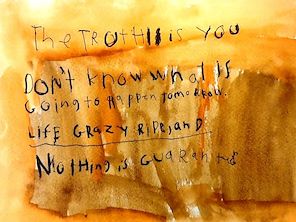 The TRUTH is you
Don't know what is
Going to happen tomorrow.
Life Crazy Ride, and
Nothing is Guaranteed